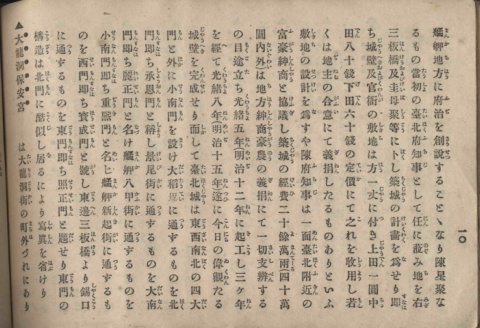 一〇
艋舺地方に府治を創設することゝなり陳星聚な
るもの當初の臺北府知事として任に蒞み地を右
三板橋庄主の母聚等に卜し築城の計畵を爲せり即
ち城壁及官衙の敷地は方一丈に付き上田一圓中
田八十錢下田六十錢の定價にて之れを收用し若
くは地主の合意にて義捐したるものありといふ
敷地の設計を爲すや陳府知事は一面臺北附近の
富豪紳商と協議し築城の經費二十餘萬兩四十萬
圓內外は地方紳商豪農の義捐にて一切支辨する
の目途立ち光緖五年明治十二年に起工し三ヶ年
を經て光緖八年明治十五年遂に今日の偉觀たる
城壁を完成せり而して臺北城は東西南北の四大
門と外に小南門を設け大稻埕に通するものを北
門即ち承恩門と稱し景尾街に通するものを大南
門即ち麗正門と名け艋舺八甲街に通するものを
小南門即ち重熙門と名じ艋舺新起街に通するも
のを西門即ち寶成門と號し東邊三板橋より錫口
に通するものを東門即ち照正門と題せり東門の
構造は北門に酷似し居るにより寫眞を省けり
▲大龍洞保安宮 は大龍洞街の町外づれにあり